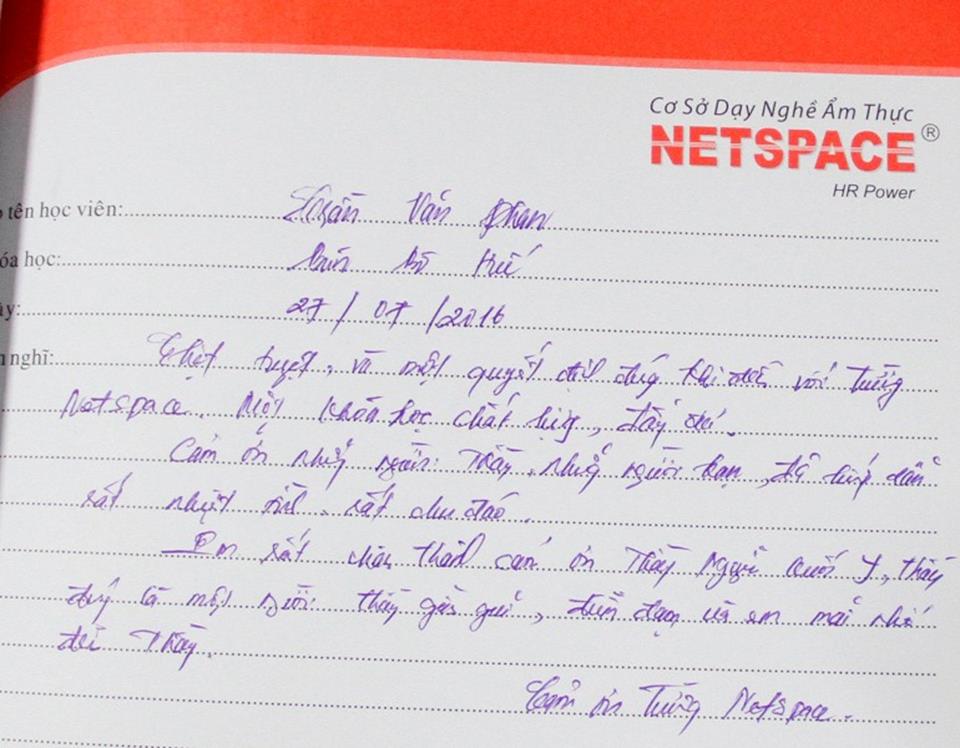 Cơ Sở Dạy Nghề Ẩm Thực
NETSPACE®
HR Power
tên học viên: Trần Văn Phan
óa học: Bún Bò Huế
ày: 27 / 07 / 2016
nghĩ: Thật tuyệt, và một quyết định đúng khi đến với trường
Netspace. Một khóa học chất lượng, đầy đủ.
Cảm ơn những người Thầy, những người bạn đã hướng dẫn
rất nhiệt tình, rất chu đáo.
Em rất chân thành cảm ơn Thầy Nguyễn Y, thầy
đúng là một người thầy gần gũi, và em mãi nhớ
đến Thầy.
Cảm ơn Trường Netspace.